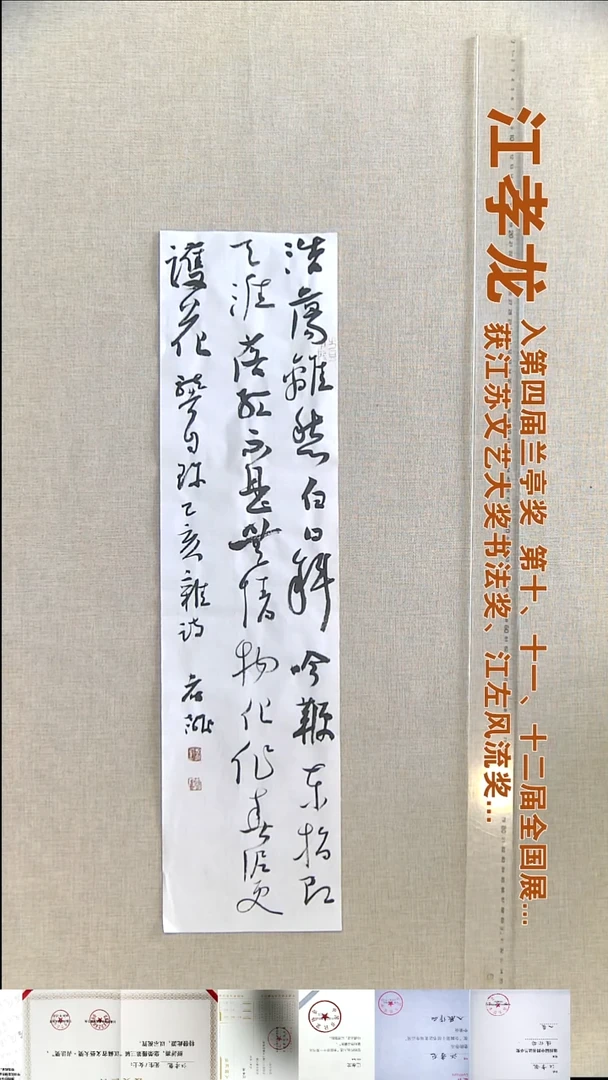 江孝龙
入第四届兰亭奖 第十、十一、十二届全国展...
获江苏文艺大奖书法奖、江左风流奖...
浩蕩離愁白日斜吟鞭東指即
天涯落紅不是無情物化作春泥更
護花 龔自珍己亥雜詩